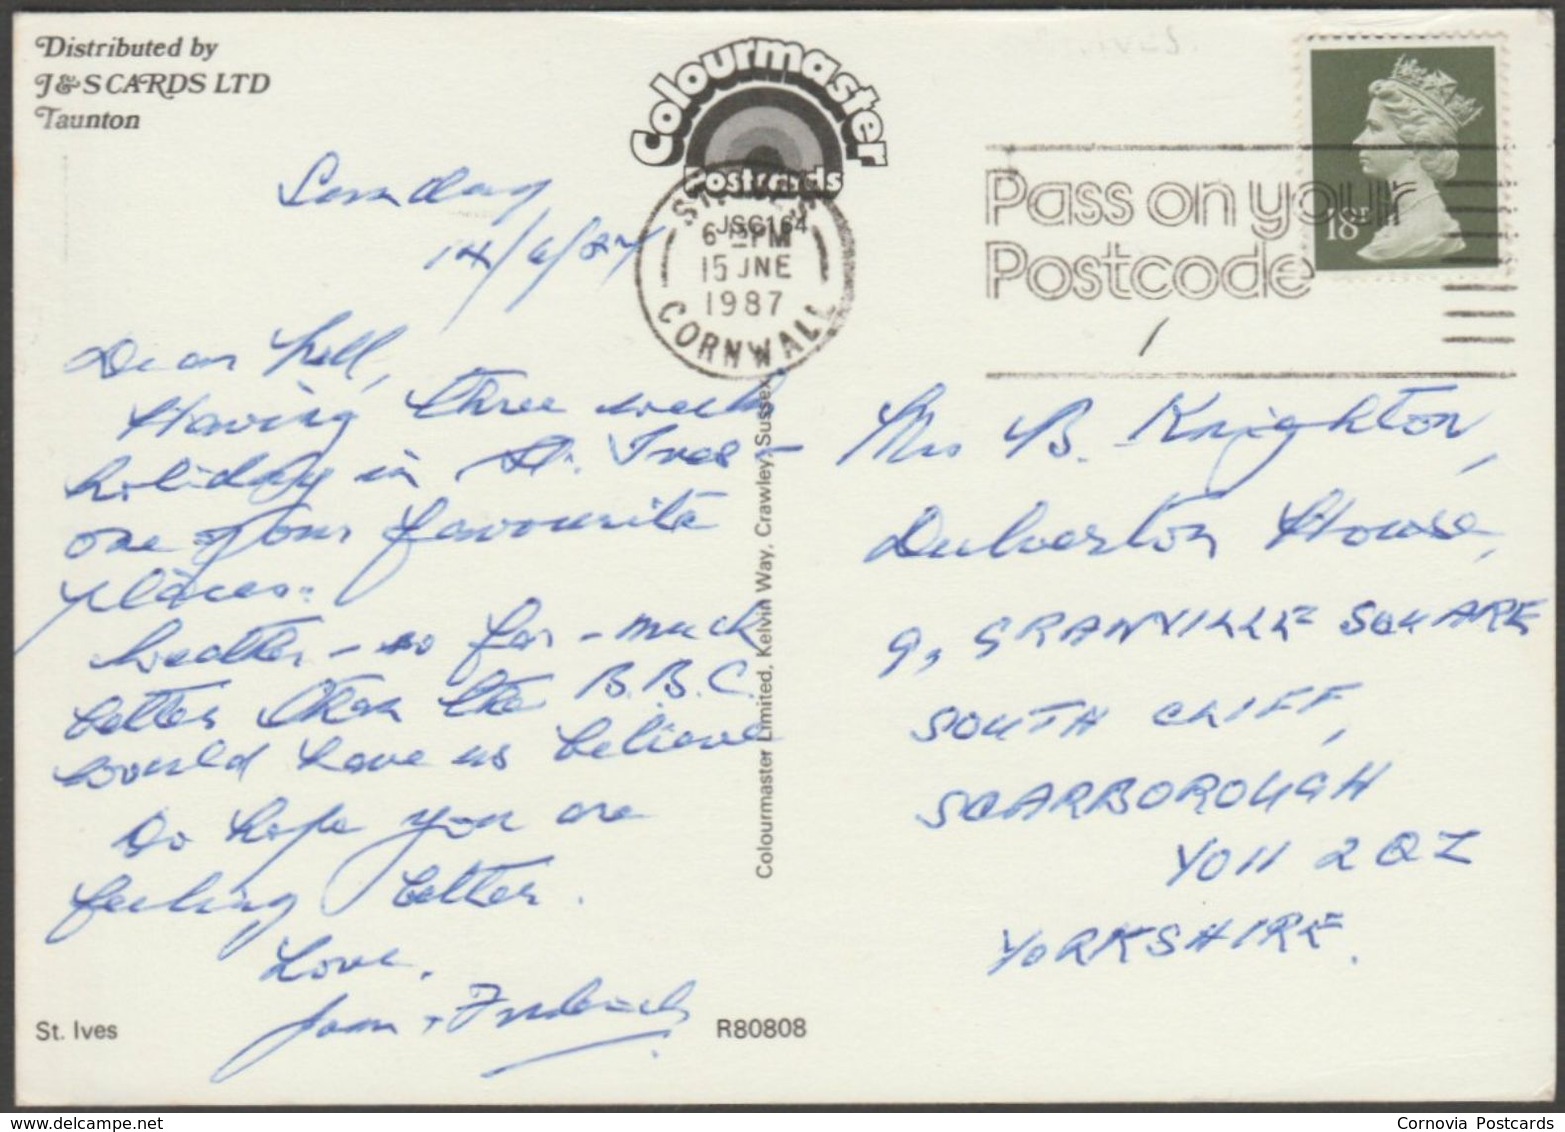 Distributed by
J&S CARDS LTD
Taunton
Colourmaster
Postcards
JSC164
ST. IVES
6 PM
15 JNE
1987
CORNWALL
Pass on your
Postcode
18P
Sunday
14/6/87
Dear Nell,
Having three weeks
holiday in St. Ives –
one of our favourite
places.
Weather – so far – much
better than the B.B.C.
would have us believe
Do hope you are
feeling better.
Love.
Joan + Frederick
Mrs B. Knighton,
Dulverton House,
9, GRANVILLE SQUARE
SOUTH CLIFF,
SCARBOROUGH
YO11 2QZ
YORKSHIRE.
Colourmaster Limited, Kelvin Way, Crawley, Sussex
St. Ives
R80808
Cornovia Postcards